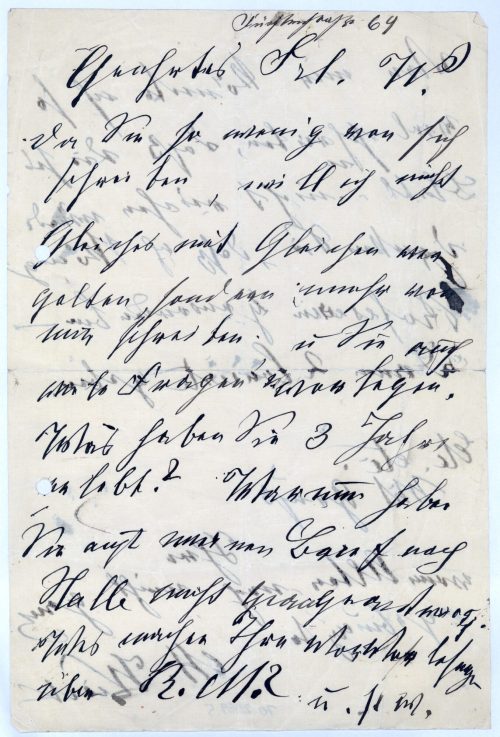 69
Geehrtes Frl. W.
da Sie so wenig von sich
schreiben, will ich nicht
Gleiches mit Gleichem ver
gelten, sondern mehr von
mir schreiben. u Sie auch
viele Fragen vorlegen.
Was haben Sie 3 Jahre
erlebt? Warum haben
Sie auf meinen Brief nach
Halle nicht geantwortet.
Was machen Ihre
über R. M.? u. s. w.